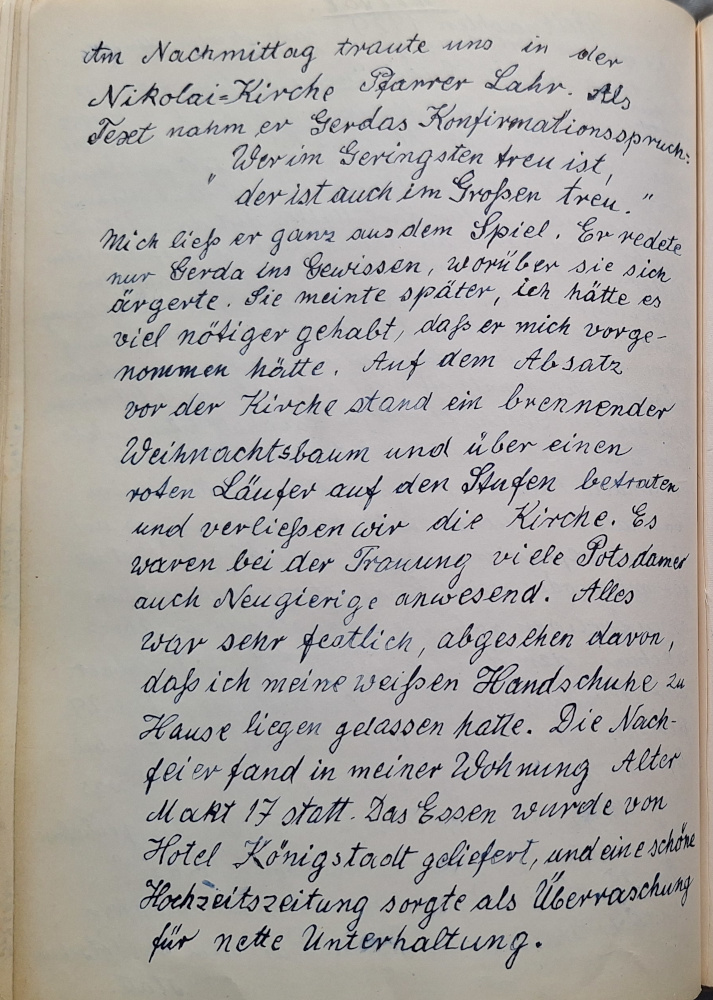 Am Nachmittag traute uns in der
Nikolai=Kirche Pfarrer Lahr. Als
Text nahm er Gerdas Konfirmationsspruch:
" Wer im Geringsten treu ist,
der ist auch im Großen treu."
Mich ließ er ganz aus dem Spiel. Er redete
nur Gerda ins Gewissen, worüber sie sich
ärgerte. Sie meinte später, ich hätte es
viel nötiger gehabt, daß er mich vorge-
nommen hätte. Auf dem Absatz
vor der Kirche stand ein brennender
Weihnachtsbaum und über einen
roten Läufer auf den Stufen betraten
und verließen wir die Kirche. Es
waren bei der Trauung viele Potsdamer
auch Neugierige anwesend. Alles
war sehr festlich, abgesehen davon,
daß ich meine weißen Handschuhe zu
Hause liegen gelassen hatte. Die Nach-
feier fand in meiner Wohnung Alter
Makt 17 statt. Das Essen wurde von
Hotel Königstadt geliefert, und eine schöne
Hochzeitszeitung sorgte als Überraschung
für nette Unterhaltung.